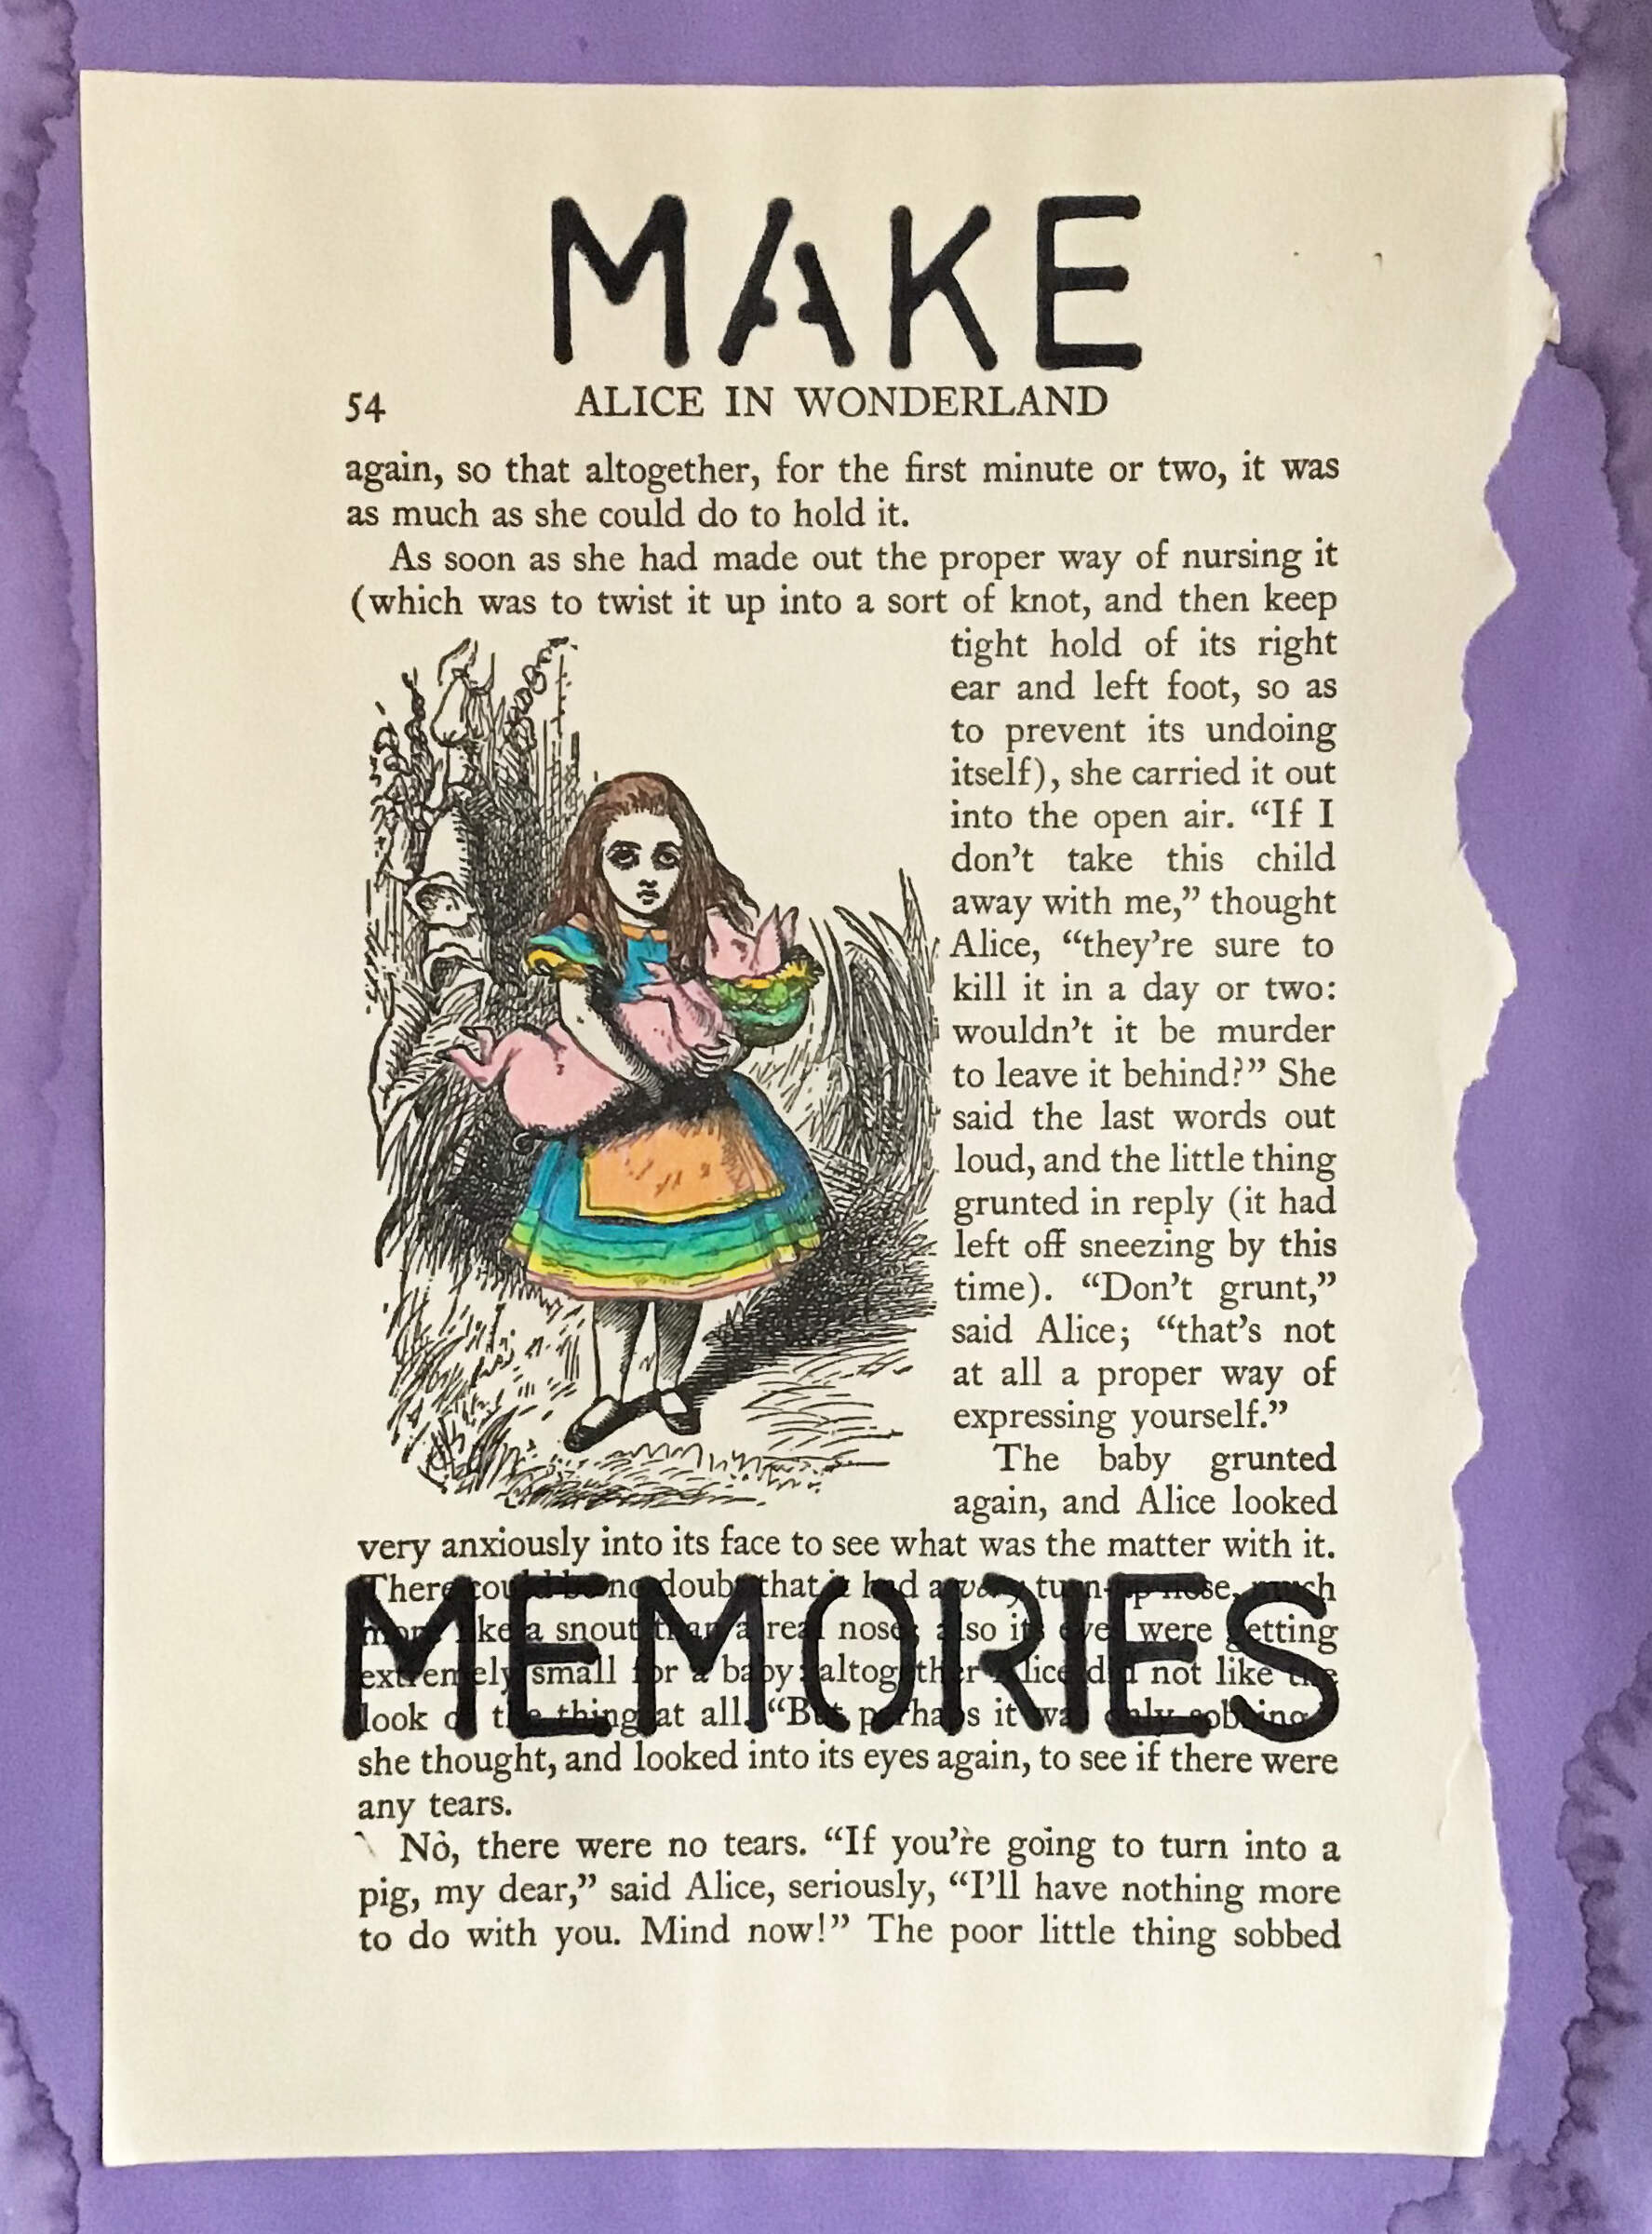 MAKE
54 ALICE IN WONDERLAND
again, so that altogether, for the first minute or two, it was
as much as she could do to hold it.
As soon as she had made out the proper way of nursing it
(which was to twist it up into a sort of knot, and then keep
tight hold of its right
ear and left foot, so as
to prevent its undoing
itself), she carried it out
into the open air. “If I
don’t take this child
away with me,” thought
Alice, “they’re sure to
kill it in a day or two:
wouldn’t it be murder
to leave it behind?” She
said the last words out
loud, and the little thing
grunted in reply (it had
left off sneezing by this
time). “Don’t grunt,”
said Alice; “that’s not
at all a proper way of
expressing yourself.”
The baby grunted
again, and Alice looked
very anxiously into its face to see what was the matter with it.
MEMORIES
There could be no doubt that it had a very turn-up nose, much
more like a snout than a real nose; also its eyes were getting
extremely small for a baby: altogether Alice did not like the
look of the thing at all. “But perhaps it was only sobbing,
she thought, and looked into its eyes again, to see if there were
any tears.
No, there were no tears. “If you’re going to turn into a
pig, my dear,” said Alice, seriously, “I’ll have nothing more
to do with you. Mind now!” The poor little thing sobbed